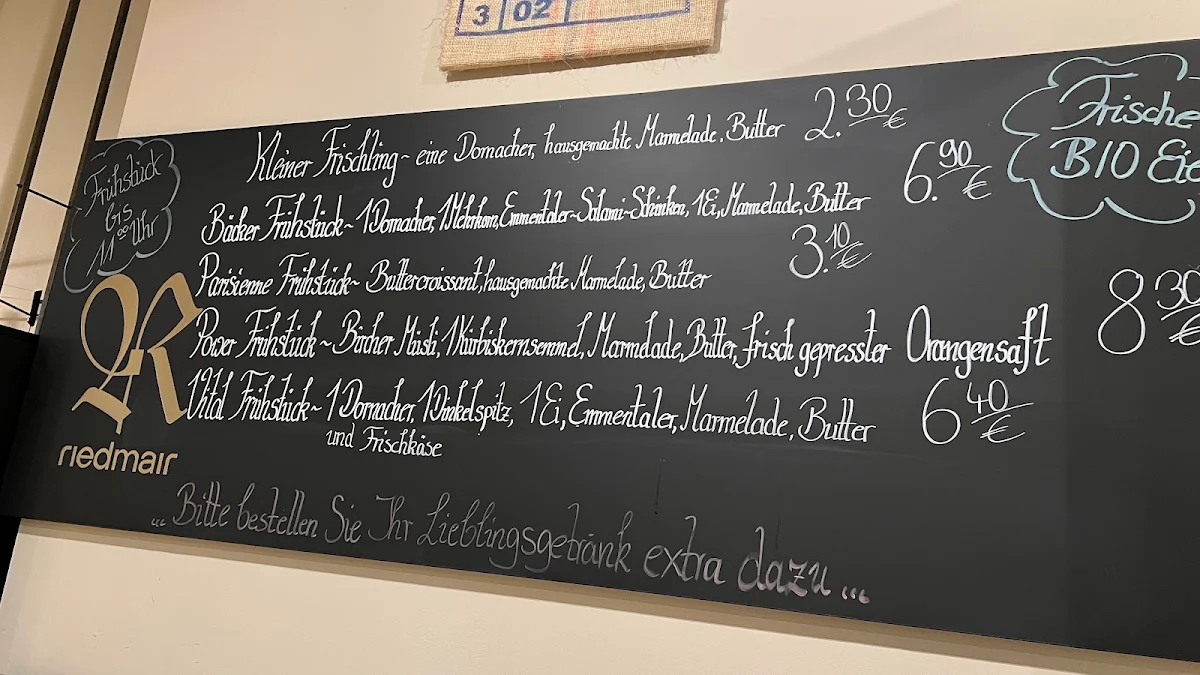 3 02
Frühstück
bis
11⁰⁰ Uhr
Kleiner Frischling ~ eine Dornacher, hausgemachte Marmelade, Butter 2.30 €
Bäcker Frühstück ~ 1 Dornacher, 1 Mehrkorn, Emmentaler-Salami-Schinken, 1 Ei, Marmelade, Butter 6.90 €
Parisienne Frühstück ~ Buttercroissant, hausgemachte Marmelade, Butter 3.10 €
Power Frühstück ~ Bircher Müsli, 1 Kürbiskernsemmel, Marmelade, Butter, frisch gepresster Orangensaft 8 30 €
Vital Frühstück ~ 1 Dornacher, 1 Dinkelspitz, 1 Ei, Emmentaler, Marmelade, Butter 6 40 €
und Frischkäse
... Bitte bestellen Sie Ihr Lieblingsgetränk extra dazu ...
R
riedmair
Frische
BIO Eie